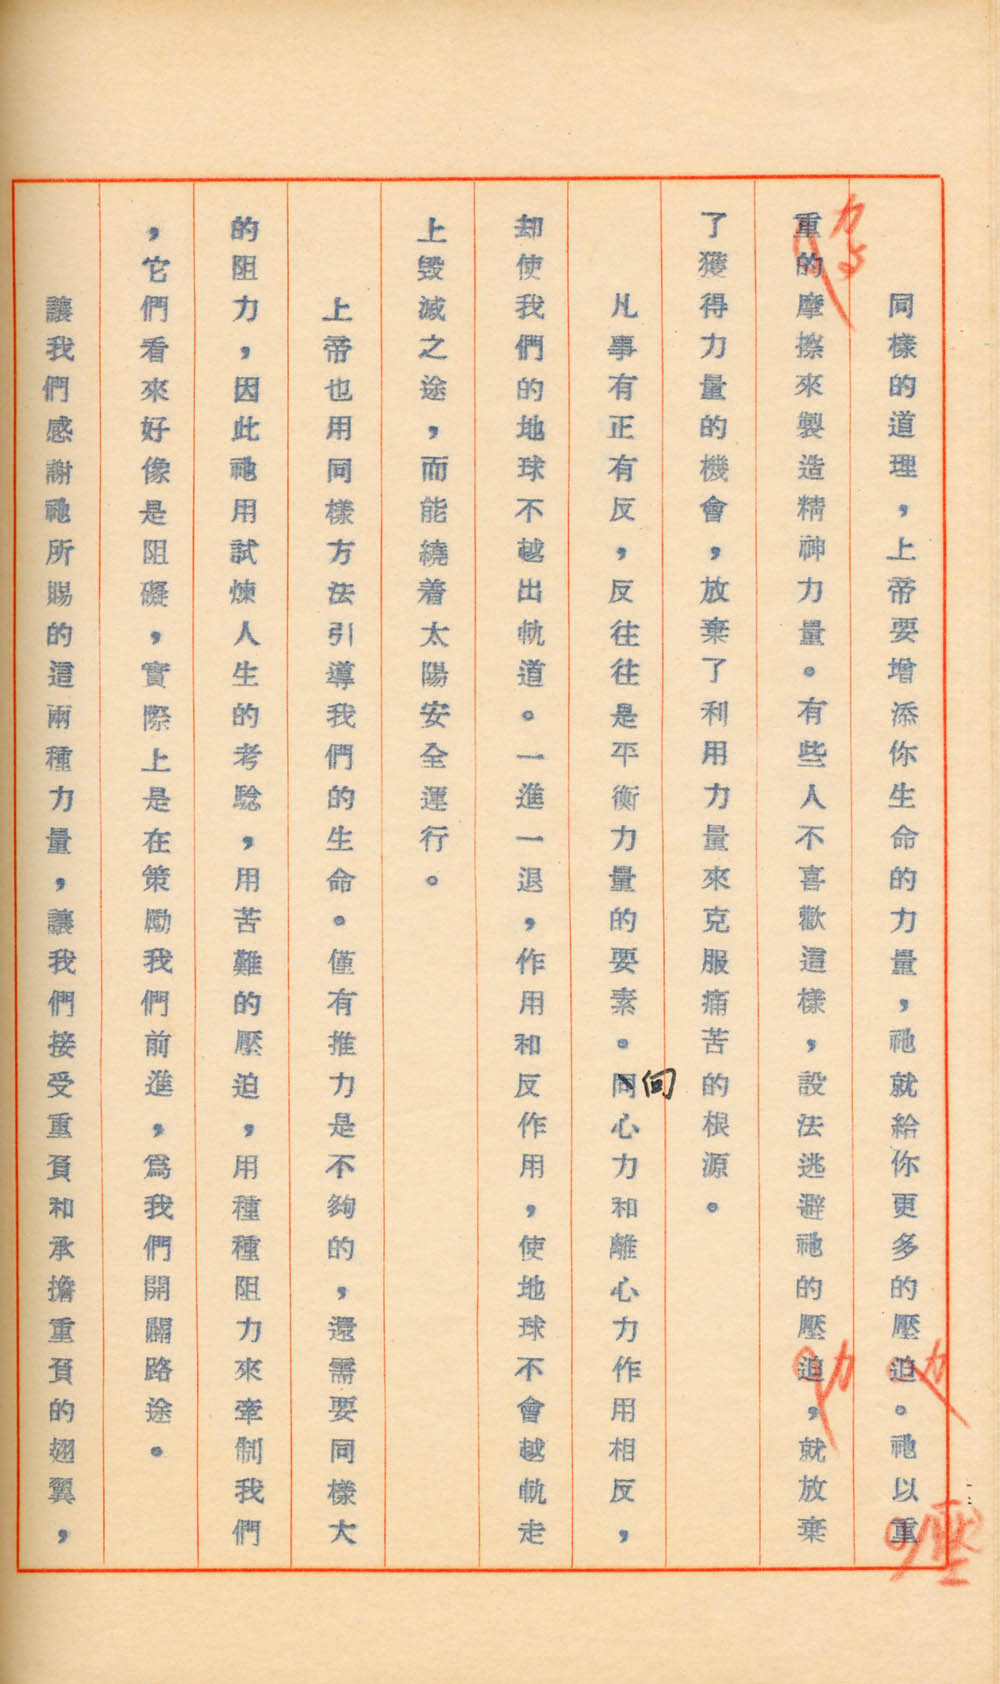 同樣的道理，上帝要增添你生命的力量，祂就給你更多的壓迫。祂以重
重的摩擦來製造精神力量。有些人不喜歡這樣，設法逃避祂的壓迫，就放棄
了獲得力量的機會，放棄了利用力量來克服痛苦的根源。
凡事有正有反，反往往是平衡力量的要素。向心力和離心力作用相反，
却使我們的地球不越出軌道。一進一退，作用和反作用，使地球不會越軌走
上毀滅之途，而能繞着太陽安全運行。
上帝也用同樣方法引導我們的生命。僅有推力是不夠的，還需要同樣大
的阻力，因此祂用試煉人生的考驗，用苦難的壓迫，用種種阻力來牽制我們
，它們看來好像是阻礙，實際上是在策勵我們前進，爲我們開闢路途。
讓我們感謝祂所賜的這兩種力量，讓我們接受重負和承擔重負的翅翼，
力
力
力
壓